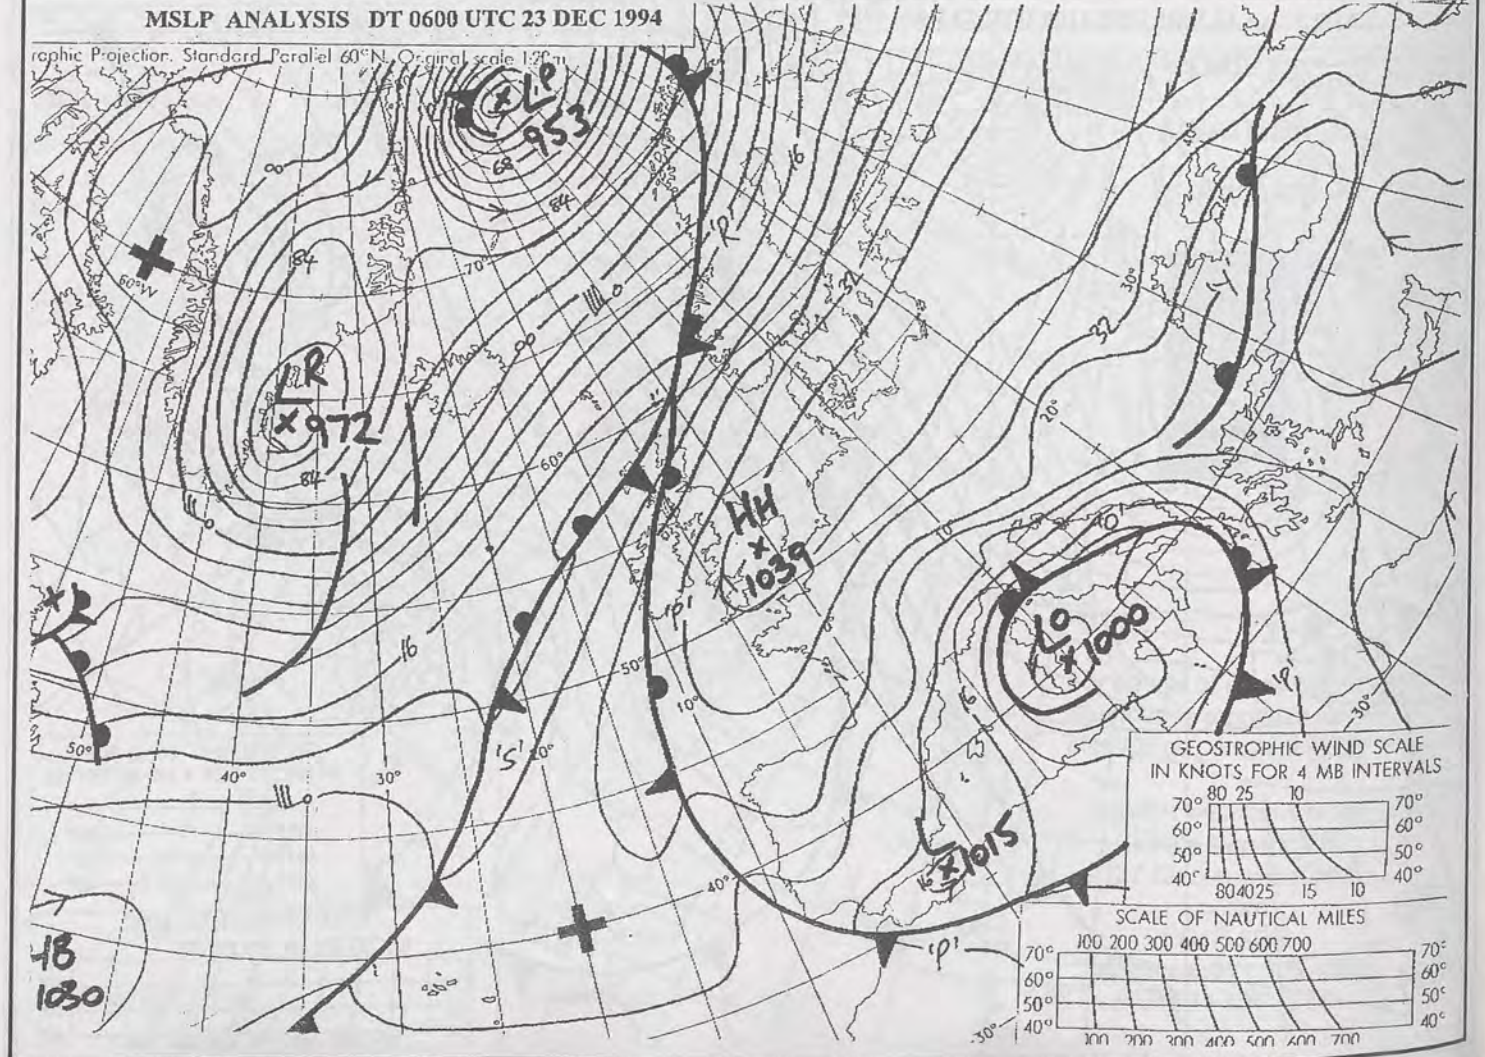 MSLP ANALYSIS DT 0600 UTC 23 DEC 1994
raphic Projection. Standard Parallel 60°N. Original scale 1:20m
L P
953
68
84
16
'R'
40°
60°W
84
70°
32
30°
32
00
L R
972
84
60°
20°
HH
1039
10°
'O'
'P'
LO
1000
50°
16
16
10°
'P'
30°
'S'
20°
50°
40°
30°
L
1015
16
40°
'P'
30°
H8
1030
GEOSTROPHIC WIND SCALE
IN KNOTS FOR 4 MB INTERVALS
80 25 10
70° 70°
60° 60°
50° 50°
40° 40°
80 40 25 15 10
SCALE OF NAUTICAL MILES
100 200 300 400 500 600 700
70° 70°
60° 60°
50° 50°
40° 40°
100 200 300 400 500 600 700